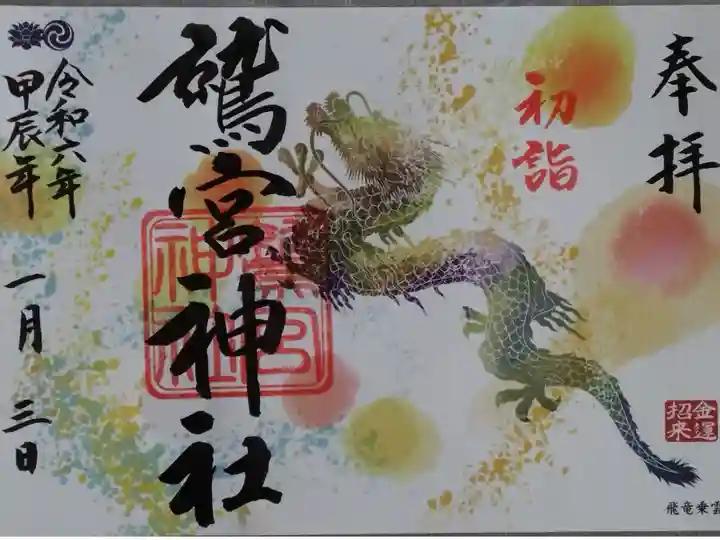 奉拝
初詣
鷲宮神社
令和六年
甲辰年
一月三日
鷲宮
神社
金運
招来
飛竜乗雲